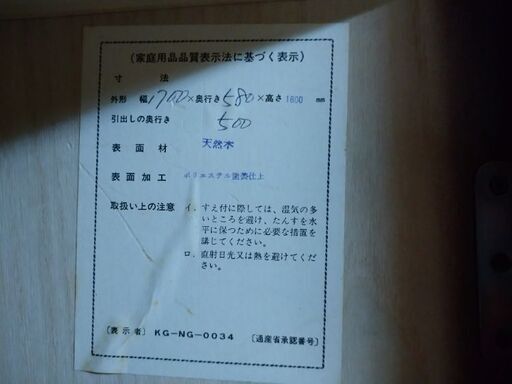 (家庭用品品質表示法に基づく表示)
寸法
外形 幅1700×奥行き580×高さ1600 mm
引出しの奥行き 500
表面材 天然木
表面加工 ポリエステル塗装仕上
取扱い上の注意 イ.すえ付に際しては、湿気の多
いところを避け、たんすを水
平に保つために必要な措置を
講じてください。
ロ.直射日光又は熱を避けてくだ
さい。
〔表示者〕KG-NG-0034 〔通産省承認番号〕